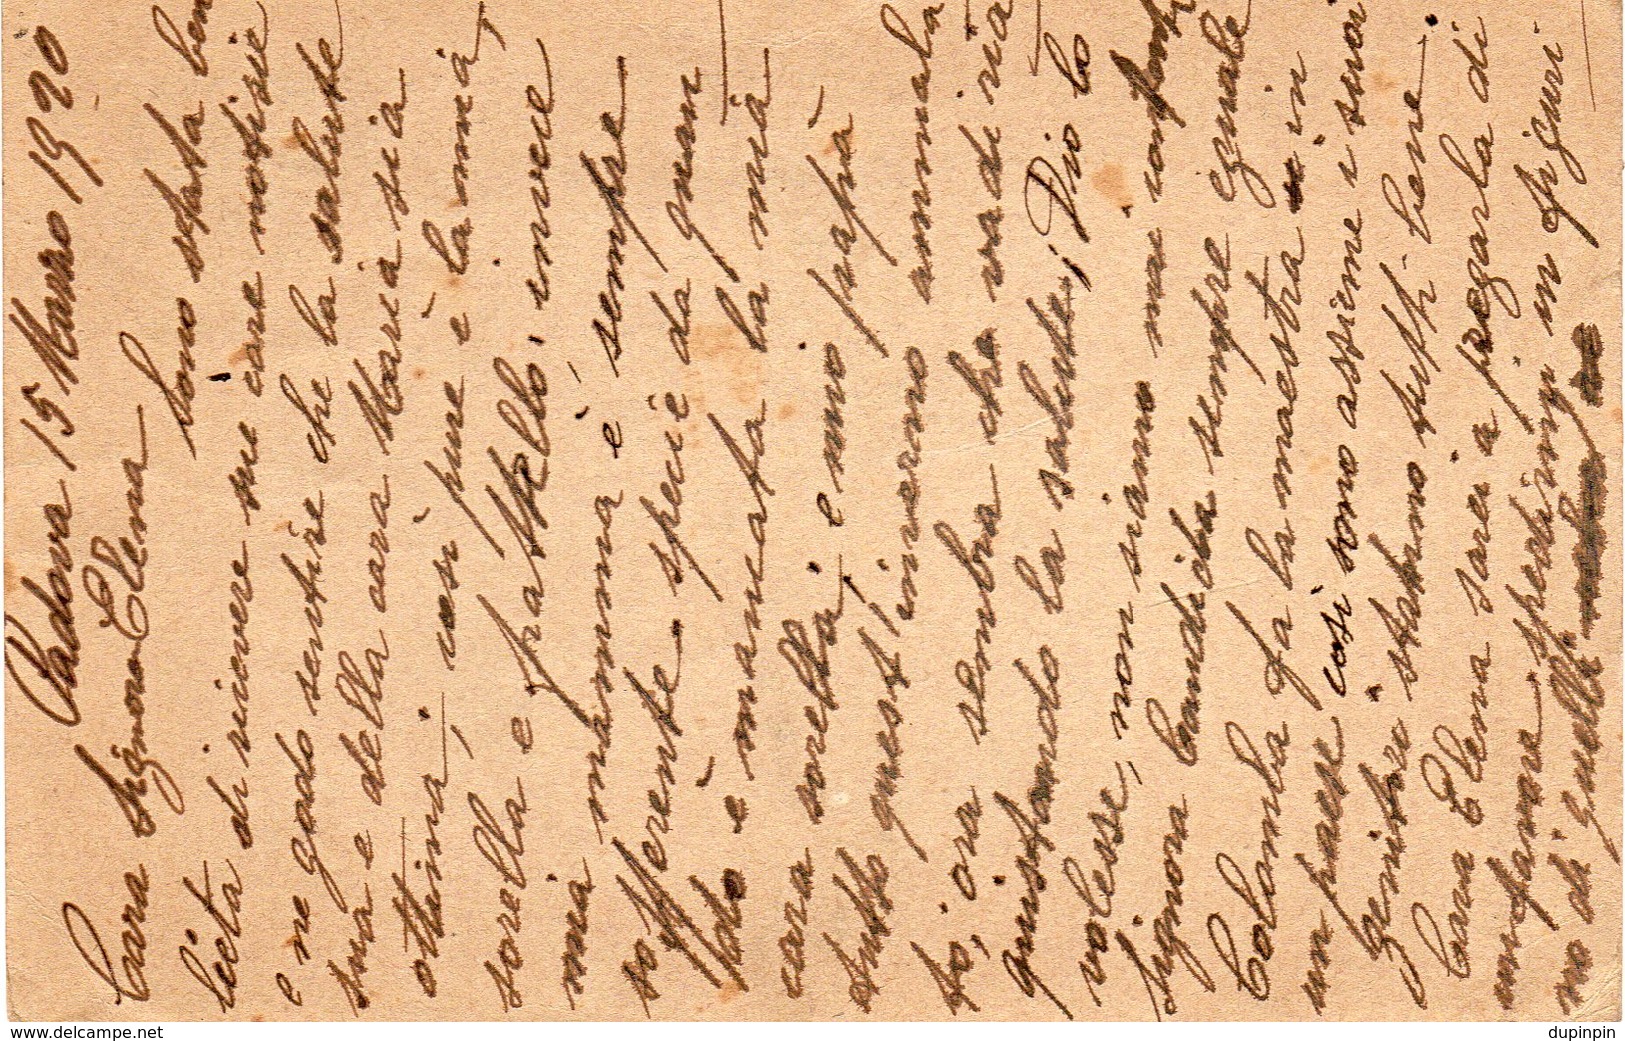 Padova 15 Marzo 1920
Cara Signora Elena
Sono stata ben
lieta di ricevere sue care notissie
e ne godo sentire che la salute
sua e della cara Maria sia
ottima, cosi pure è la mia,
sorella e frattello, invece
mia mamma è sempre
sofferente specie da quan
do è mancata la mia
cara sorella e mio papà
tutto quest inverno ammala
to, ora sembra che vadi ria
quistando la salute, Dio lo
volesse, non siamo mai
Signora Candida sempre eguale
Colomba fa la maestra in
un paese cosi sono assieme i suoi
genitori stanno tutti bene
Cara Elena sarei a pregarla di
un favore, spedirmi un figuri
no di quelli
www.delcampe.net
dupinpin